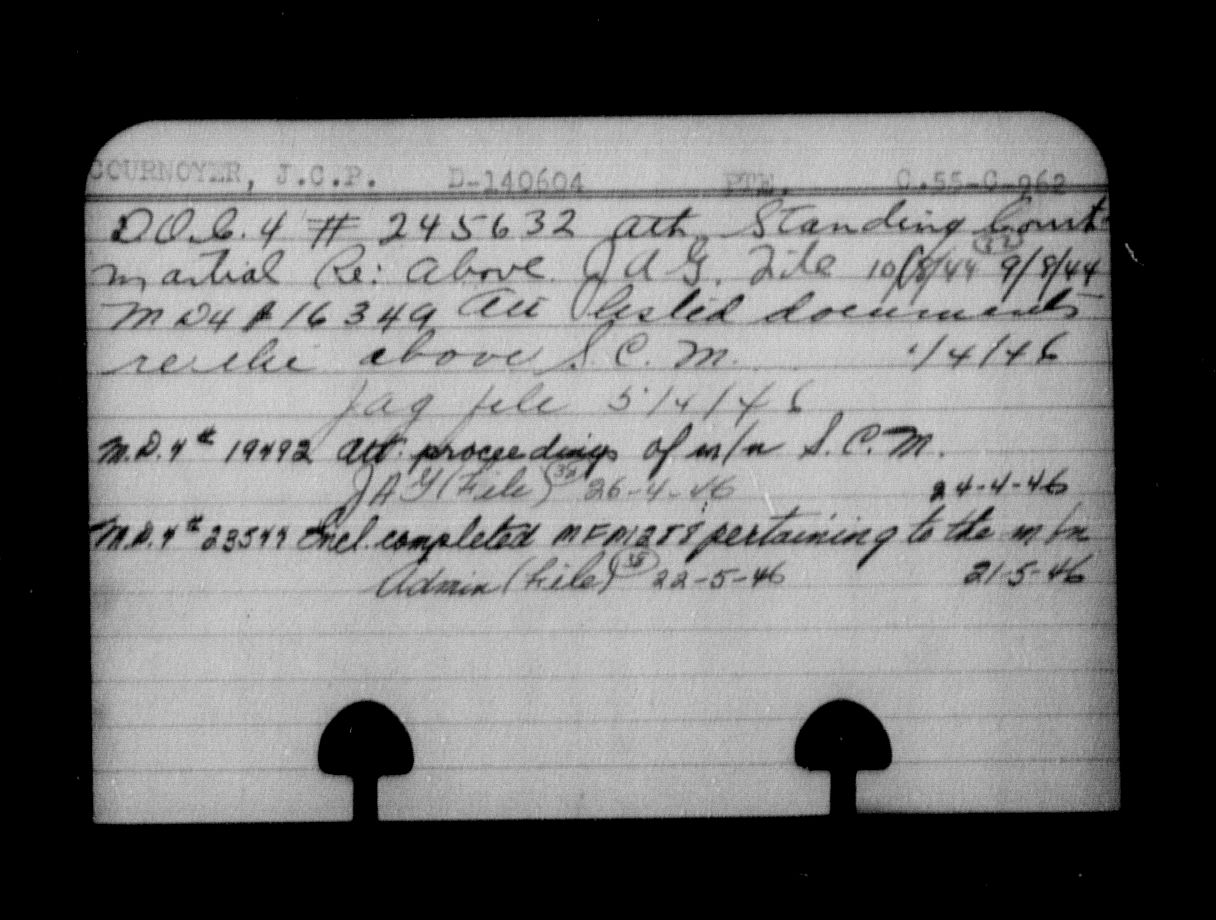 COURNOYER, J.C.P. D-140604 PTE. C.55-C-962
D.O.C. 4 # 245632 att. Standing Court
martial Re: above. J A G. File 10/8/44 9/8/44
M D 4 # 16349 att listed documents
re the above S. C. M. /4/46
Jag file 5/4/46
M.D. 4 # 19492 att. proceedings of m/n S.C.M.
JAG (File) 26-4-46 24-4-46
M.D. 4 # 23549 Encl. completed MFM 288 pertaining to the m/n
Admin (File) 22-5-46 21-5-46